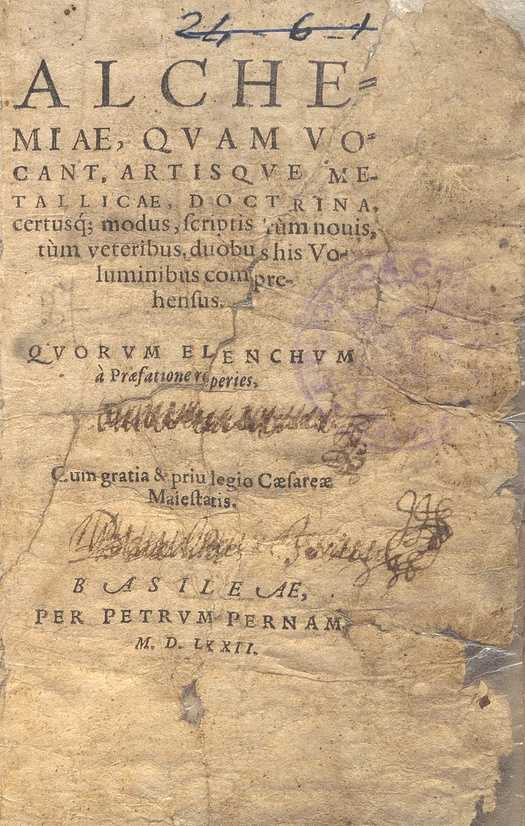 24-6-1
ALCHE=
MIAE, QVAM VO=
CANT, ARTISQVE ME-
TALLICAE, DOCTRINA,
certusq́; modus, ſcriptis tùm nouis,
tùm veteribus, duobus his Vo-
luminibus compre-
henſus.
QVORVM ELENCHVM
à Præfatione reperies,
Cum gratia & priuilegio Cæſareæ
Maieſtatis.
BASILEAE,
PER PETRVM PERNAM
M. D. LXXII.